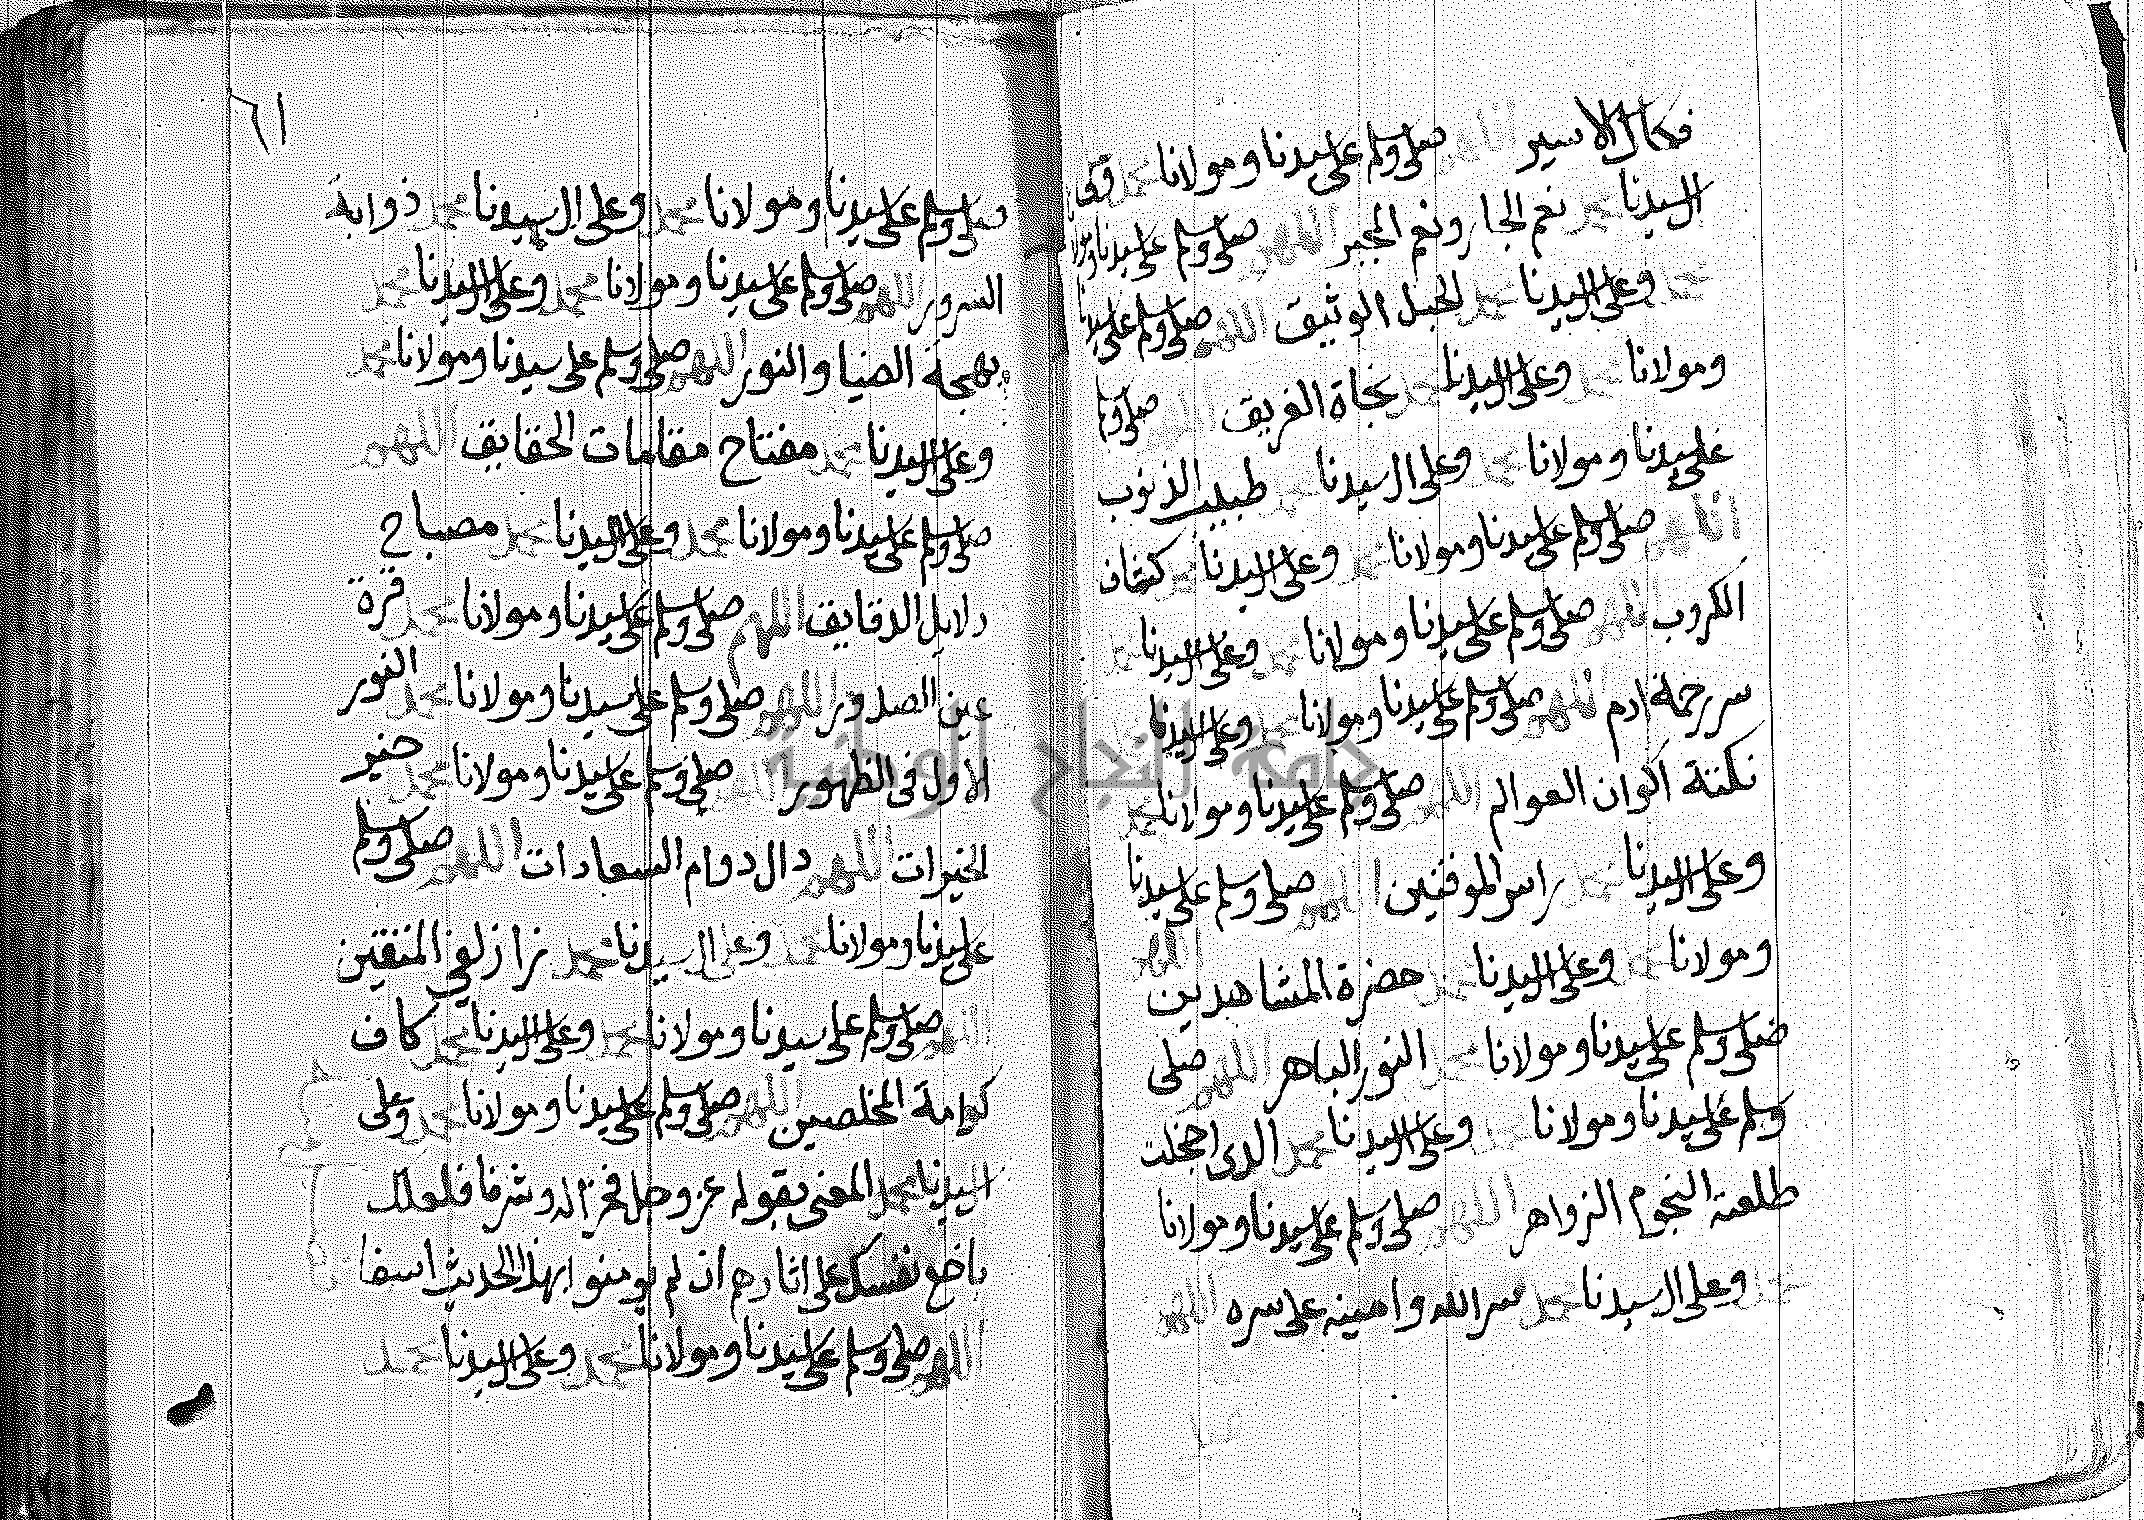 فكاك الاسير اللهم صلى وسلم على سيدنا ومولانا محمد وعلى
ال سيدنا محمد نعم الجار ونعم المجير اللهم صلى وسلم على سيدنا ومولانا
محمد وعلى ال سيدنا محمد الحبل الوثيق اللهم صلى وسلم على سيدنا
ومولانا محمد وعلى ال سيدنا محمد نجاة الغريق اللهم صلى وسلم
على سيدنا ومولانا محمد وعلى ال سيدنا محمد طبيب الذنوب
اللهم صلى وسلم على سيدنا ومولانا محمد وعلى ال سيدنا محمد كشاف
الكروب اللهم صلى وسلم على سيدنا ومولانا محمد وعلى ال سيدنا محمد
سر رحمة ادم اللهم صلى وسلم على سيدنا ومولانا محمد وعلى ال سيدنا
نكتة اكوان العوالم اللهم صلى وسلم على سيدنا ومولانا محمد
وعلى ال سيدنا محمد راس الموقنين اللهم صلى وسلم على سيدنا
ومولانا محمد وعلى ال سيدنا محمد حضرة المشاهدين اللهم
صلى وسلم على سيدنا ومولانا محمد النور الباهر اللهم صلى
وسلم على سيدنا ومولانا محمد وعلى ال سيدنا محمد الذى اخجلت
طلعته النجوم الزواهر اللهم صلى وسلم على سيدنا ومولانا
محمد وعلى ال سيدنا محمد سر الله وامينه على سره اللهم
٦١
صلى وسلم على سيدنا ومولانا محمد وعلى ال سيدنا محمد ذوابة
السرور اللهم صلى وسلم على سيدنا ومولانا محمد وعلى ال سيدنا محمد
بهجة الضيا والنور اللهم صلى وسلم على سيدنا ومولانا محمد
وعلى ال سيدنا محمد مفتاح مقامات الحقايق اللهم
صلى وسلم على سيدنا ومولانا محمد وعلى ال سيدنا محمد مصباح
دلايل الدقايق اللهم صلى وسلم على سيدنا ومولانا محمد قرة
عين الصدور اللهم صلى وسلم على سيدنا ومولانا محمد النور
الاول فى الظهور اللهم صلى وسلم على سيدنا ومولانا محمد خير
الخيرات اللهم دال دوام السعادات اللهم صلى وسلم
على سيدنا ومولانا محمد وعلى ال سيدنا محمد زلفى المتقين
اللهم صلى وسلم على سيدنا ومولانا محمد وعلى ال سيدنا محمد كاف
كرامة المخلصين اللهم صلى وسلم على سيدنا ومولانا محمد وعلى
ال سيدنا محمد المعنى بقوله عز وجل فخرا له وشرفا فلعلك
باخع نفسك على اثارهم ان لم يومنوا بهذا الحديث اسفا
اللهم صلى وسلم على سيدنا ومولانا محمد وعلى ال سيدنا محمد
جامعة النجاح الوطنية